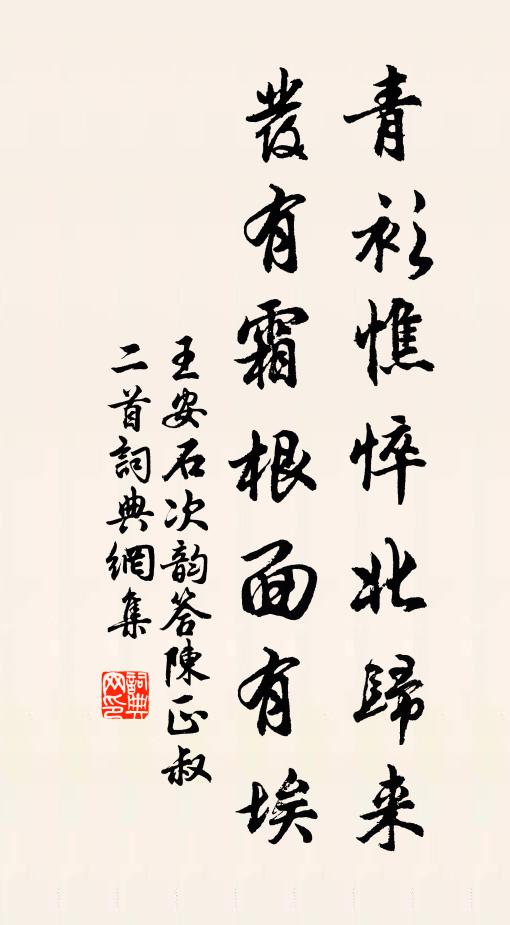 青衫憔悴北歸来
發有霜根面有埃
王安石次韵答陳正叔
二首詞典網集
詞典网印